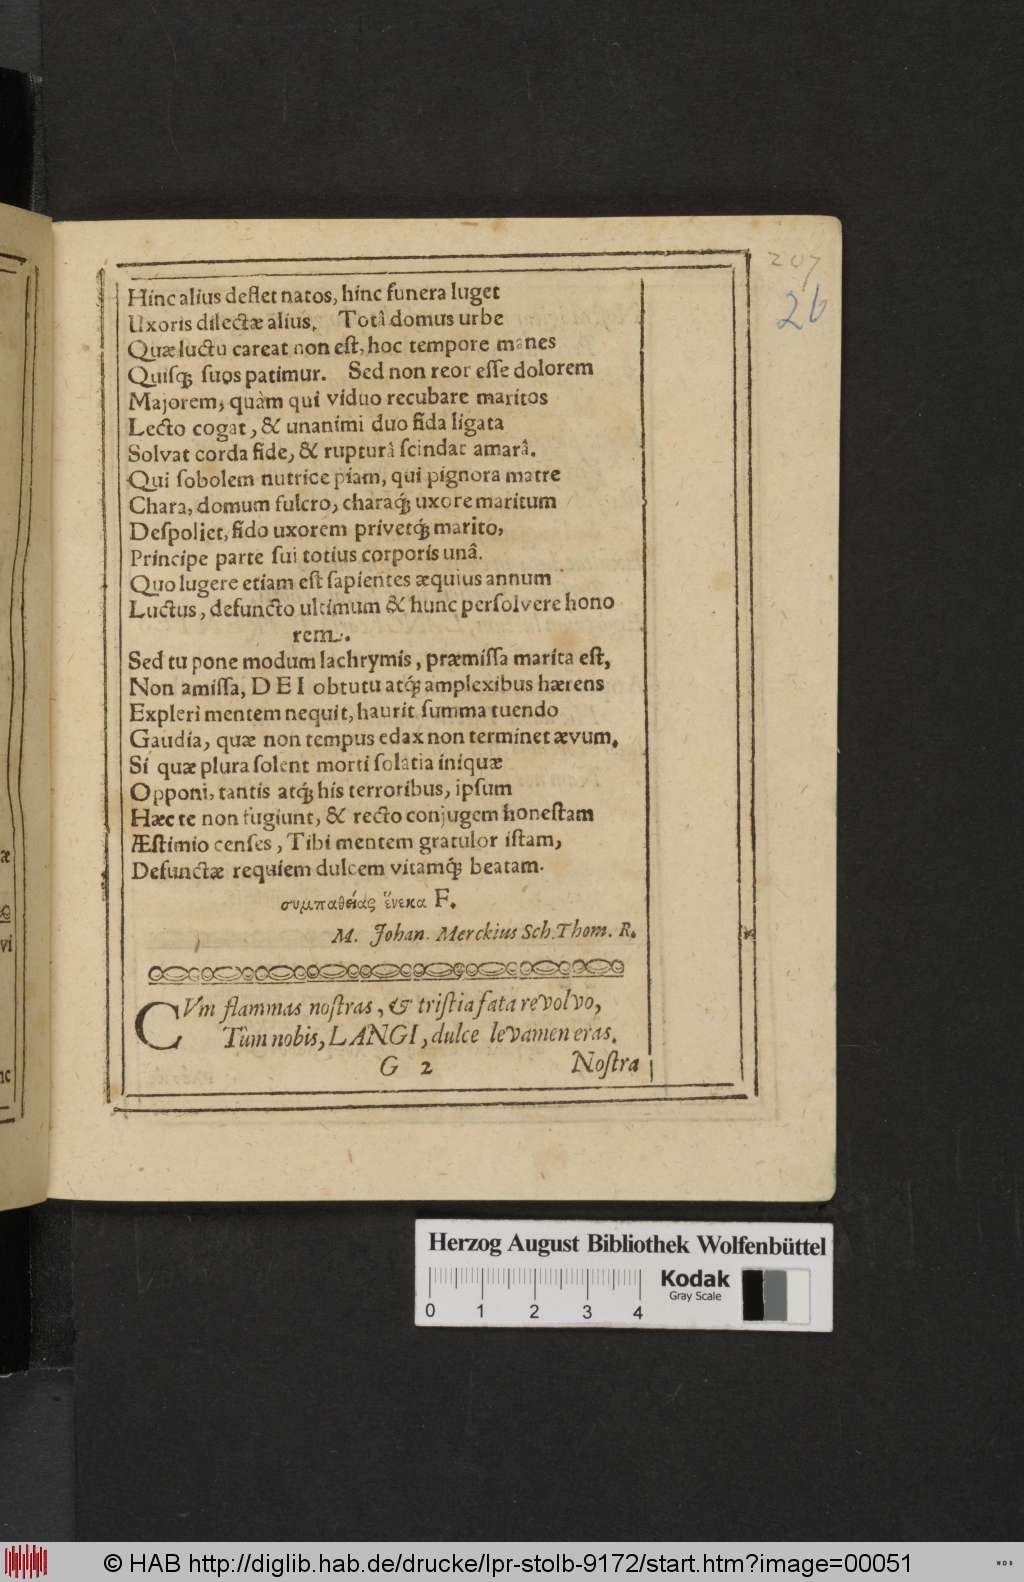 207
26
Hinc alius deflet natos, hinc funera luget
Uxoris dilectæ alius. Totâ domus urbe
Quæ luctu careat non est, hoc tempore manes
Quisq́; suos patimur. Sed non reor esse dolorem
Majorem, quàm qui viduo recubare maritos
Lecto cogat, & unanimi duo fida ligata
Solvat corda fide, & rupturâ scindat amarâ.
Qui sobolem nutrice piam, qui pignora matre
Chara, domum fulcro, charaq́; uxore maritum
Despoliet, fido uxorem privetq́; marito,
Principe parte sui totius corporis unâ.
Quo lugere etiam est sapientes æquius annum
Luctus, defuncto ultimum & hunc persolvere hono
rem.
Sed tu pone modum lachrymis, præmissa marita est,
Non amissa, DEI obtutu atq́; amplexibus hærens
Expleri mentem nequit, haurit summa tuendo
Gaudia, quæ non tempus edax non terminet ævum.
Si quæ plura solent morti solatia iniquæ
Opponi, tantis atq́; his terroribus, ipsum
Hæc te non fugiunt, & recto conjugem honestam
Æstimio censes, Tibi mentem gratulor istam,
Defunctæ requiem dulcem vitamq́; beatam.
συμπαθείας ἕνεκα F.
M. Johan. Merckius Sch. Thom. R.
CVm flammas nostras, & tristia fata revolvo,
Tùm nobis, LANGI, dulce levamen eras.
G 2 Nostra
æ
vi
nc
Herzog August Bibliothek Wolfenbüttel
Kodak
Gray Scale
0 1 2 3 4
© HAB http://diglib.hab.de/drucke/lpr-stolb-9172/start.htm?image=00051